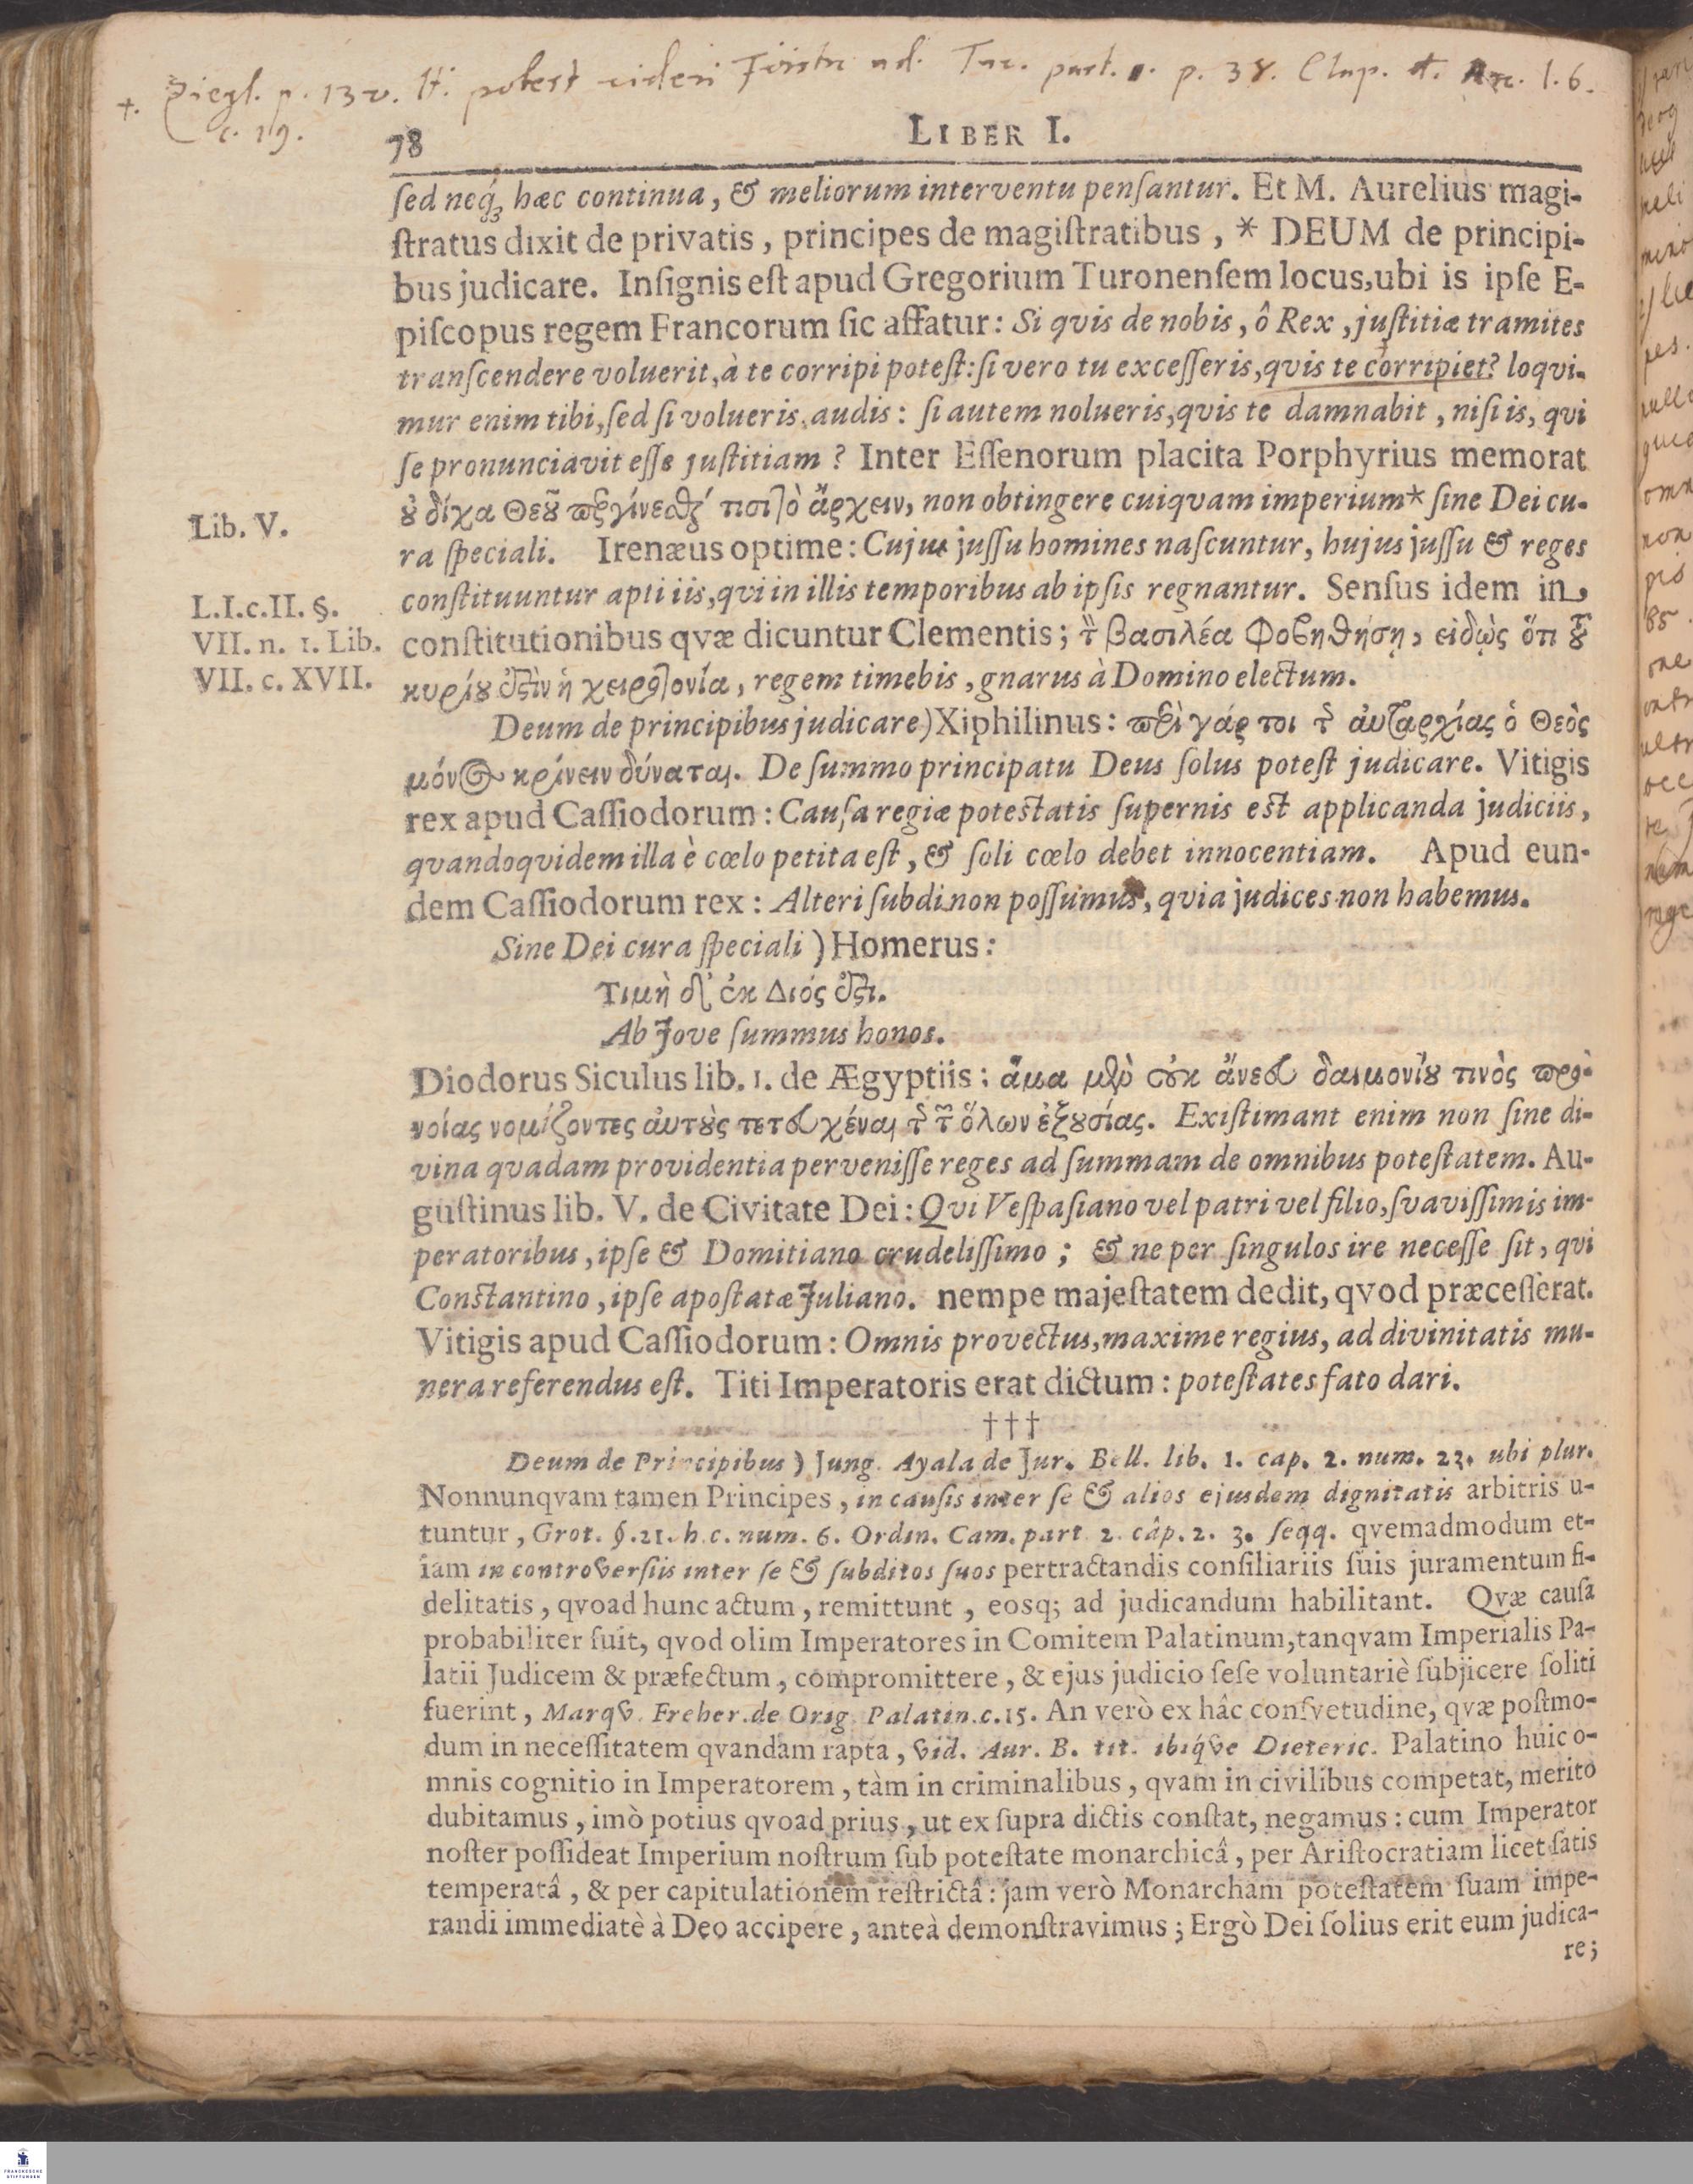 +. Ziegl. p. 13 v. It. potest videri Förstn ad. Tac. part. p. 38. Clap. l. 6.
c. 19.
78
LIBER I.
ſed neq́ꝫ hæc continua, & meliorum interventu penſantur. Et M. Aurelius magi-
ſtratus dixit de privatis, principes de magiſtratibus, * DEUM de principi-
bus judicare. Inſignis eſt apud Gregorium Turonenſem locus, ubi is ipſe E-
piſcopus regem Francorum ſic affatur: Si qvis de nobis, ô Rex, juſtitiæ tramites
tranſcendere voluerit, à te corripi poteſt: ſi vero tu exceſſeris, qvis te corripiet? loqvi-
mur enim tibi, ſed ſi volueris, audis: ſi autem nolueris, qvis te damnabit, niſi is, qvi
ſe pronunciavit eſſe juſtitiam? Inter Eſſenorum placita Porphyrius memorat
ȣ δίχα Θεȣ͂ περιγίνεσθαί τισι τὸ ἄρχειν, non obtingere cuiqvam imperium * ſine Dei cu-
Lib. V.
ra ſpeciali. Irenæus optime: Cujus juſſu homines naſcuntur, hujus juſſu & reges
conſtituuntur apti iis, qvi in illis temporibus ab ipſis regnantur. Senſus idem in
L.I.c.II. §.
VII. n. 1. Lib.
VII. c. XVII.
conſtitutionibus qvæ dicuntur Clementis; τὸν βασιλέα φοβηθήσῃ, εἰδὼς ὅτι τȣ͂
κυρίȣ ἐστὶν ἡ χειροτονία, regem timebis, gnarus à Domino electum.
Deum de principibus judicare) Xiphilinus: περὶ γάρ τοι τῆς αὐταρχίας ὁ Θεὸς
μόνος κρίνειν δύναται. De ſummo principatu Deus ſolus poteſt judicare. Vitigis
rex apud Caſſiodorum: Cauſa regiæ poteſtatis ſupernis eſt applicanda judiciis,
qvandoqvidem illa è cœlo petita eſt, & ſoli cœlo debet innocentiam. Apud eun-
dem Caſſiodorum rex: Alteri ſubdi non poſſumus, qvia judices non habemus.
Sine Dei cura ſpeciali) Homerus:
Τιμὴ δ' ἐκ Διός ἐστι.
Ab Jove ſummus honos.
Diodorus Siculus lib. 1. de Ægyptiis: ἅμα μὲν οὐκ ἄνευ δαιμονίȣ τινὸς προ-
νοίας νομίζοντες αὐτȣ̀ς τετευχέναι τῆς τῶν ὅλων ἐξȣσίας. Exiſtimant enim non ſine di-
vina qvadam providentia perveniſſe reges ad ſummam de omnibus poteſtatem. Au-
guſtinus lib. V. de Civitate Dei: Qvi Veſpaſiano vel patri vel filio, ſvaviſſimis im-
peratoribus, ipſe & Domitiano crudeliſſimo; & ne per ſingulos ire neceſſe ſit, qvi
Conſtantino, ipſe apoſtatæ Juliano. nempe majeſtatem dedit, qvod præceſſerat.
Vitigis apud Caſſiodorum: Omnis provectus, maxime regius, ad divinitatis mu-
nera referendus eſt. Titi Imperatoris erat dictum: poteſtates fato dari.
†††
Deum de Principibus) Jung. Ayala de Jur. Bell. lib. 1. cap. 2. num. 23. ubi plur.
Nonnunqvam tamen Principes, in cauſis inter ſe & alios ejusdem dignitatis arbitris u-
tuntur, Grot. §.21. h.c. num. 6. Ordin. Cam. part 2. câp. 2. 3. ſeqq. qvemadmodum et-
iam in controverſiis inter ſe & ſubditos ſuos pertractandis conſiliariis ſuis juramentum fi-
delitatis, qvoad hunc actum, remittunt, eosq; ad judicandum habilitant. Qvæ cauſa
probabiliter fuit, qvod olim Imperatores in Comitem Palatinum, tanqvam Imperialis Pa-
latii Judicem & præfectum, compromittere, & ejus judicio ſeſe voluntariè ſubjicere ſoliti
fuerint, Marqv. Freher. de Orig. Palatin. c. 15. An verò ex hâc conſvetudine, qvæ poſtmo-
dum in neceſſitatem qvandam rapta, vid. Aur. B. tit. ibiq́ve Dieteric. Palatino huic o-
mnis cognitio in Imperatorem, tàm in criminalibus, qvam in civilibus competat, meritò
dubitamus, imò potius qvoad prius, ut ex ſupra dictis conſtat, negamus: cum Imperator
noſter poſſideat Imperium noſtrum ſub poteſtate monarchicâ, per Ariſtocratiam licet ſatis
temperatâ, & per capitulationem reſtrictâ: jam verò Monarcham poteſtatem ſuam impe-
randi immediatè à Deo accipere, anteà demonſtravimus; Ergò Dei ſolius erit eum judica-
re;
FRANCKESCHE
STIFTUNGEN